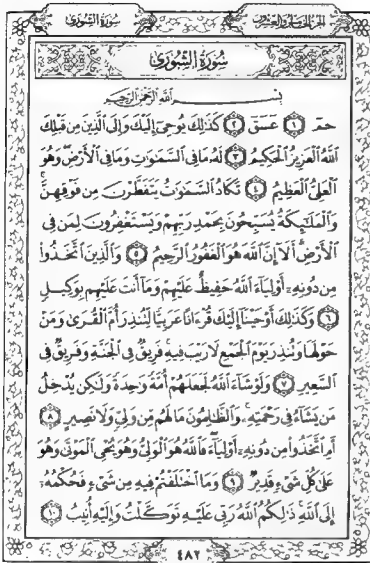 الجزء الخامس والعشرون سورة الشورى
سورة الشورى
بسم الله الرحمن الرحيم
حمٓ ١ عٓسٓقٓ ٢ كَذَٰلِكَ يُوحِىٓ إِلَيْكَ وَإِلَى ٱلَّذِينَ مِن قَبْلِكَ
ٱللَّهُ ٱلْعَزِيزُ ٱلْحَكِيمُ ٣ لَهُۥ مَا فِى ٱلسَّمَٰوَٰتِ وَمَا فِى ٱلْأَرْضِ ۖ وَهُوَ
ٱلْعَلِىُّ ٱلْعَظِيمُ ٤ تَكَادُ ٱلسَّمَٰوَٰتُ يَتَفَطَّرْنَ مِن فَوْقِهِنَّ ۚ
وَٱلْمَلَٰٓئِكَةُ يُسَبِّحُونَ بِحَمْدِ رَبِّهِمْ وَيَسْتَغْفِرُونَ لِمَن فِى
ٱلْأَرْضِ ۗ أَلَآ إِنَّ ٱللَّهَ هُوَ ٱلْغَفُورُ ٱلرَّحِيمُ ٥ وَٱلَّذِينَ ٱتَّخَذُوا۟
مِن دُونِهِۦٓ أَوْلِيَآءَ ٱللَّهُ حَفِيظٌ عَلَيْهِمْ وَمَآ أَنتَ عَلَيْهِم بِوَكِيلٍ
٦ وَكَذَٰلِكَ أَوْحَيْنَآ إِلَيْكَ قُرْءَانًا عَرَبِيًّا لِّتُنذِرَ أُمَّ ٱلْقُرَىٰ وَمَنْ
حَوْلَهَا وَتُنذِرَ يَوْمَ ٱلْجَمْعِ لَا رَيْبَ فِيهِ ۚ فَرِيقٌ فِى ٱلْجَنَّةِ وَفَرِيقٌ فِى
ٱلسَّعِيرِ ٧ وَلَوْ شَآءَ ٱللَّهُ لَجَعَلَهُمْ أُمَّةً وَٰحِدَةً وَلَٰكِن يُدْخِلُ
مَن يَشَآءُ فِى رَحْمَتِهِۦ ۚ وَٱلظَّٰلِمُونَ مَا لَهُم مِّن وَلِىٍّ وَلَا نَصِيرٍ ٨
أَمِ ٱتَّخَذُوا۟ مِن دُونِهِۦٓ أَوْلِيَآءَ ۖ فَٱللَّهُ هُوَ ٱلْوَلِىُّ وَهُوَ يُحْىِ ٱلْمَوْتَىٰ وَهُوَ
عَلَىٰ كُلِّ شَىْءٍ قَدِيرٌ ٩ وَمَا ٱخْتَلَفْتُمْ فِيهِ مِن شَىْءٍ فَحُكْمُهُۥٓ
إِلَى ٱللَّهِ ۚ ذَٰلِكُمُ ٱللَّهُ رَبِّى عَلَيْهِ تَوَكَّلْتُ وَإِلَيْهِ أُنِيبُ ١٠
٤٨٢